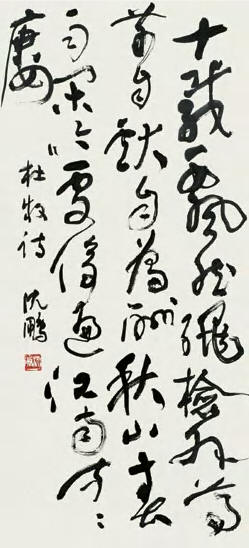 十載飄然繩檢外尊
前自獻自為酬秋山春
雨閑吟處倚遍江南寺々
樓
杜牧詩 沈鵬